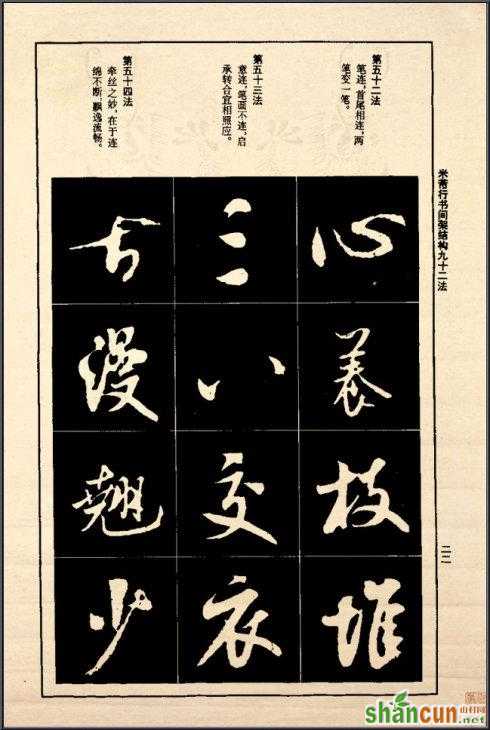 米芾行书间架结构九十二法
二二
第五十二法
笔连,首尾相连,两
笔变一笔。
第五十三法
意连,笔画不连,启
承转合宜相照应。
第五十四法
牵丝之妙,在于连
绵不断,飘逸流畅。
心养枝堆
三八交衣
漫翘少
山村网
shancun.net